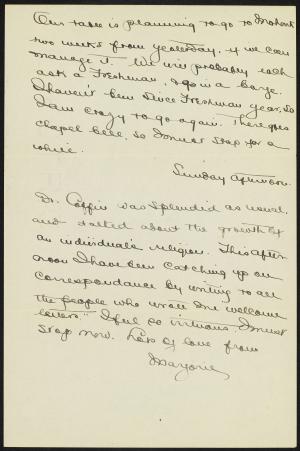 Our table is planning to go to Mohonk
two weeks from yesterday, if we can
manage it. We will probably each
ask a Freshman, & go in a barge.
I haven't been since Freshman year, so
I am crazy to go again. There goes
chapel bell, so I must stop for a
while.
Sunday afternoon.
Dr. Coffin was splendid as usual,
and talked about the growth of
an individual's religion. This after-
noon I have been catching up on
correspondance by writing to all
the people who wrote me "welcome
letters." I feel so virtuous. I must
stop now. Lots of love from
Marjorie